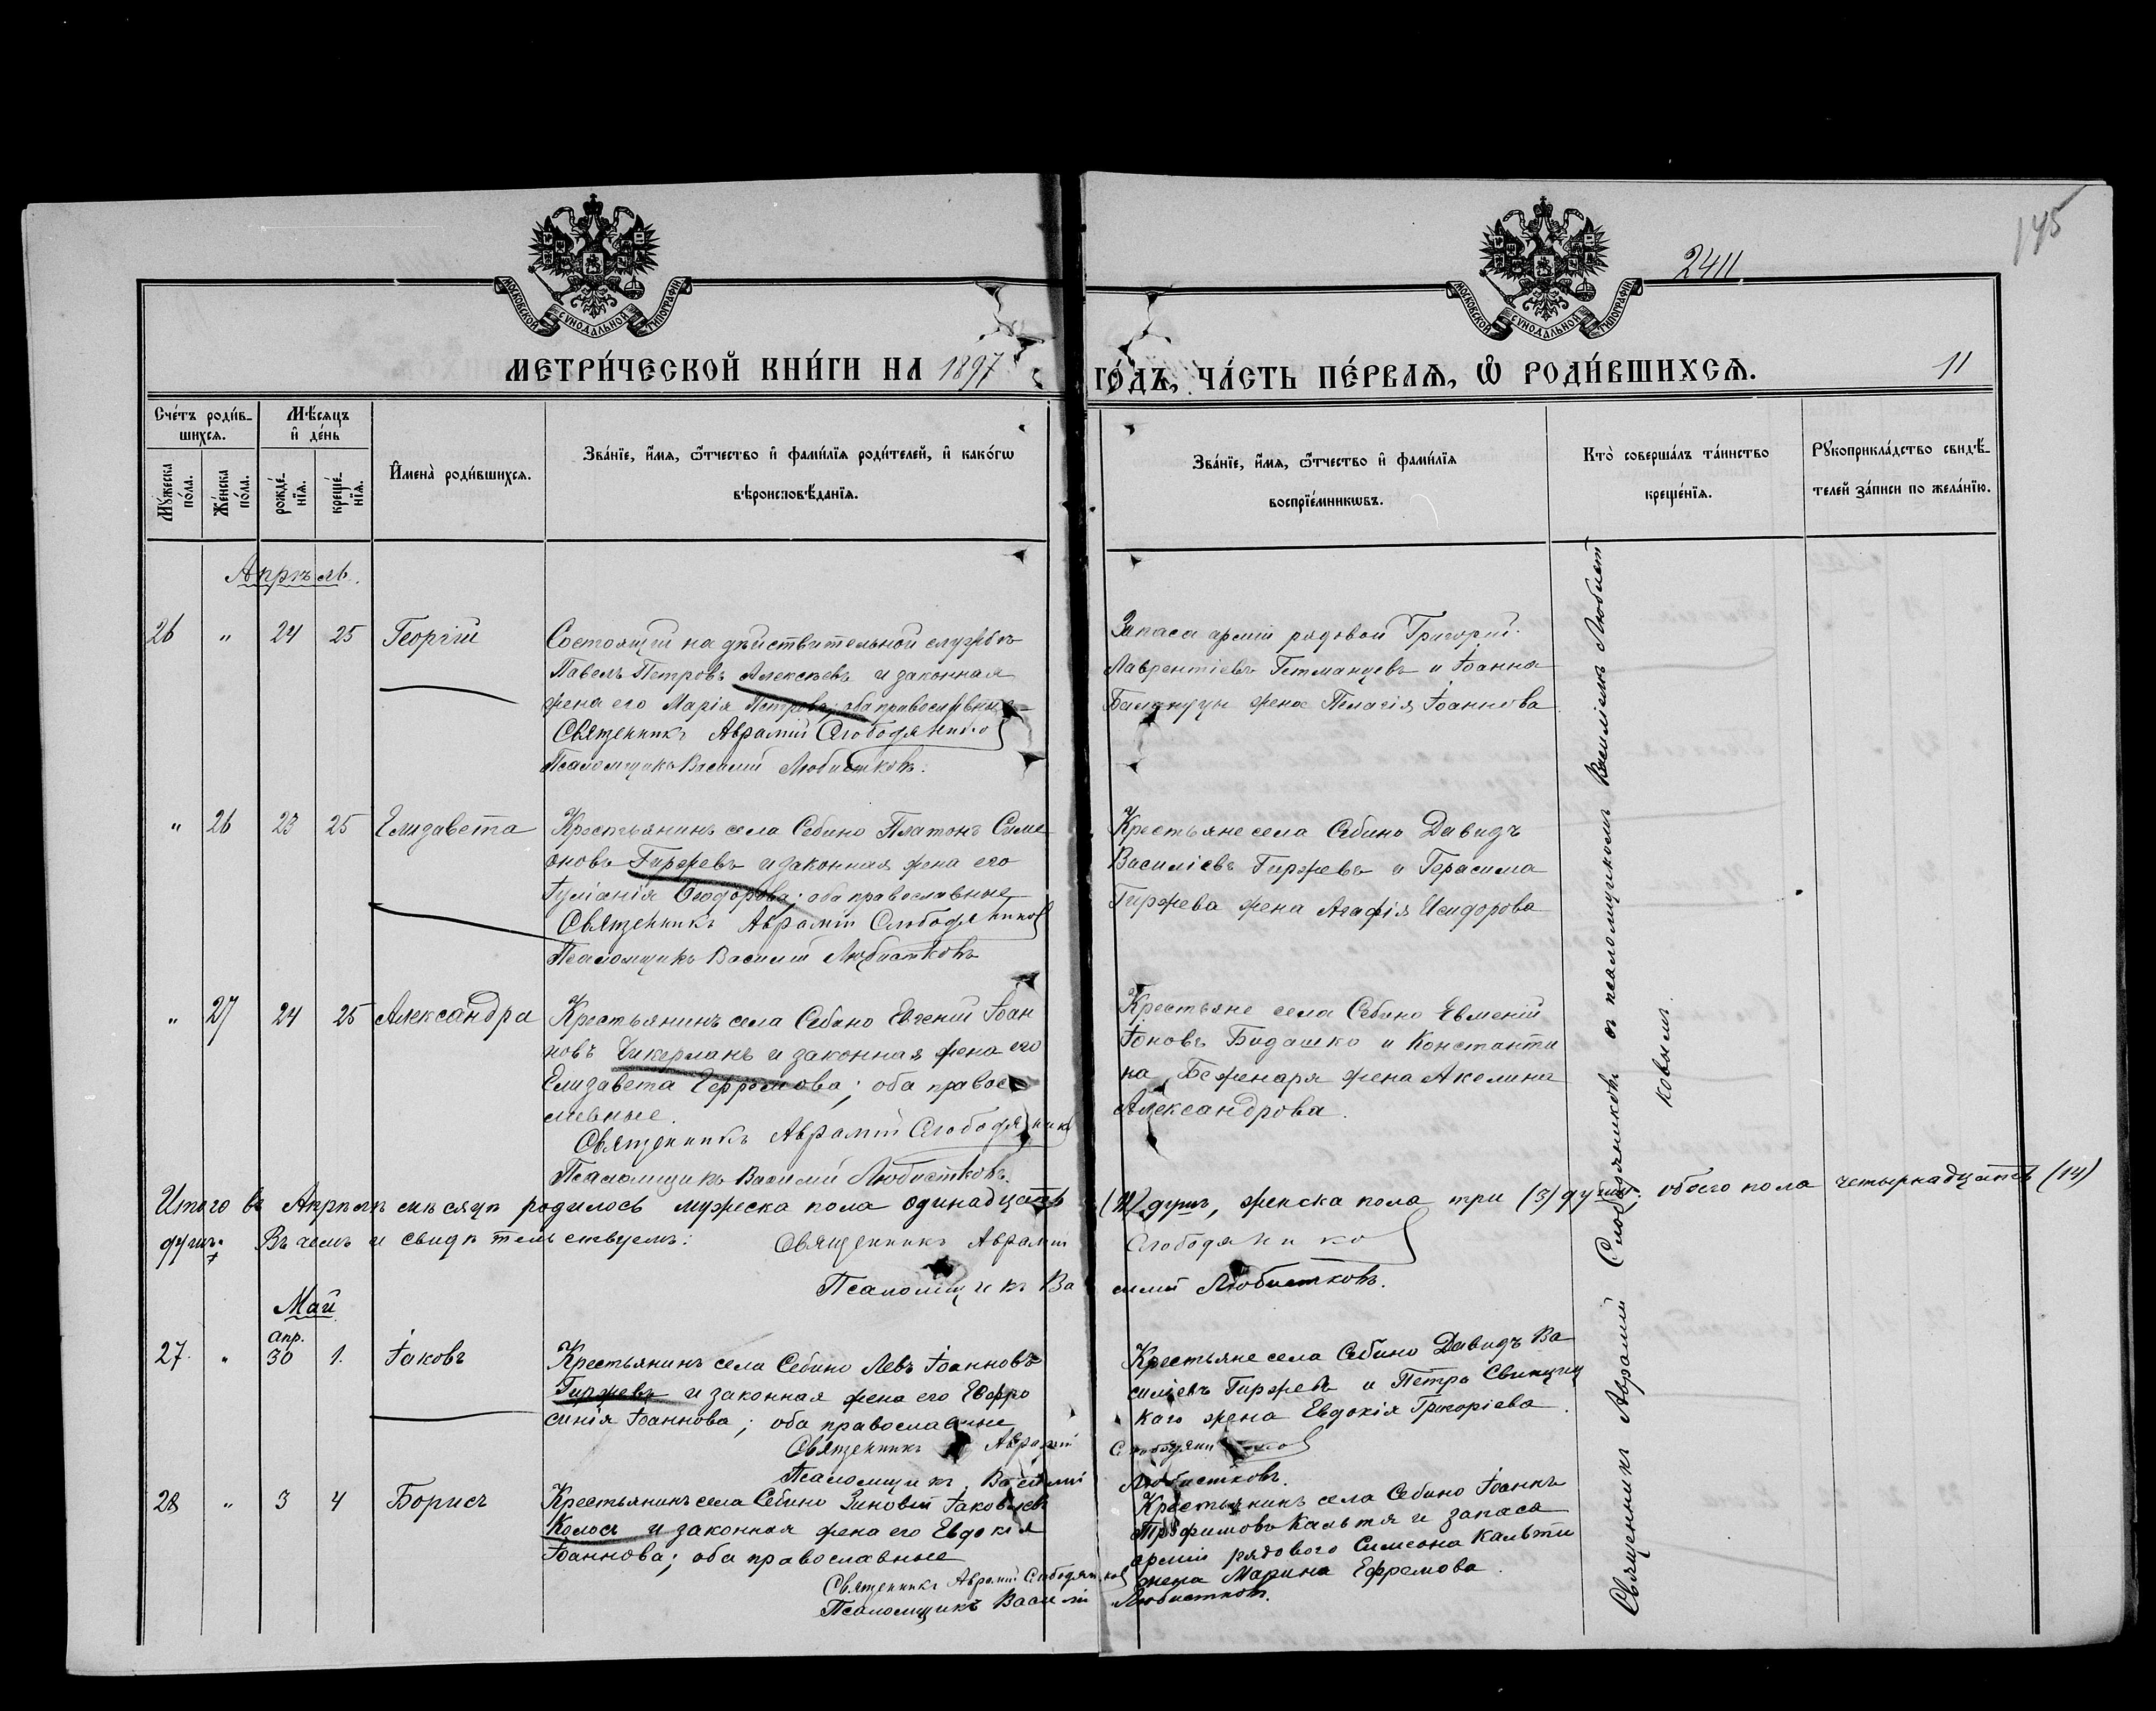 145
2411
МОСКОВСКОЙ СѴНОДАЛЬНОЙ ТИПОГРАФІИ
МОСКОВСКОЙ СѴНОДАЛЬНОЙ ТИПОГРАФІИ
МЕТРИ́ЧЕСКОЙ КНИ́ГИ НА 1897 ГО́ДЪ, ЧА́СТЬ ПЕ́РВАѦ, Ѽ РОДИ́ВШИХСѦ. 11
Сче́тъ роди́в-
шихсѧ.
Мѣ́сѧцъ
и҆ де́нь
Мꙋ́жеска
по́ла.
Же́нска
по́ла.
рожде́-
нїѧ.
креще́-
нїѧ.
И҆мена̀ роди́вшихсѧ.
Зва́нїе, и҆́мѧ, ѻ҆́тчество и҆ фами́лїѧ роди́телей, и҆ како́гѡ
вѣроисповѣ́данїѧ.
Зва́нїе, и҆́мѧ, ѻ҆́тчество и҆ фами́лїѧ
воспрїе́мникѡвъ.
Кто̀ соверша́лъ та́инство
креще́нїѧ.
Рꙋкоприкла́дство свидѣ́-
телей за́писи по жела́нїю.
Апрѣль.
26 " 24 25 Георгій
Состоящій на дѣйствительной службѣ
Павелъ Петровъ Алексѣевъ и законная
жена его Марія Петрова; оба православные
Священникъ Аврамій Слободяников
Псаломщикъ Василій Любистковъ.
Запаса арміи рядовой Григорій
Лаврентіевъ Гетманцевъ и Іоанна
жена Пелагія Іоаннова
" 26 23 25 Елизавета
Крестьянинъ села Себино Платонъ Симе
оновъ Гиржевъ и законная жена его
Іуліанія Ѳеодорова; оба православные
Священникъ Аврамій Слободяников
Псаломщикъ Василій Любистковъ
Крестьяне села Себино Давидъ
Василіевъ Гиржевъ и Герасима
Гиржева жена Агафія Исидорова
" 27 24 25 Александра
Крестьянинъ села Себино Евгеній Іоан
новъ Чикерланъ и законная жена его
Елизавета Ефремова; оба правос
лавные.
Священникъ Аврамій Слободяник
Псаломщикъ Василій Любистковъ.
Крестьяне села Себино Евменій
Іоновъ Бидашко и Константи
на Беженаря жена Акелина
Александрова.
Итого въ Апрѣлѣ мѣсяцѣ родилось мужеска пола одинадцать (11) душъ, женска пола три (3) души, обоего пола четырнадцать (14)
душъ. Въ чемъ и свидѣтельствуемъ: Священникъ Аврамій Слободянико
Псаломщикъ Василій Любистковъ.
Май
27. " апр. 30 1. Іаковъ
Крестьянинъ села Себино Левъ Іоанновъ
Гиржевъ и законная жена его Евфро
синія Іоаннова; оба православные
Священникъ Аврамій
Псаломщикъ Василій Любистковъ.
Крестьяне села Себино Давидъ Ва
силіевъ Гиржевъ и Петра Свинциц
каго жена Евдокія Григоріева.
28 " 3 4 Борисъ
Крестьянинъ села Себино Зиновій Іаковлевъ
Колосъ и законная жена его Евдокія
Іоаннова; оба православные
Священникъ Аврамій Слободяников
Псаломщикъ Василій Любистковъ.
Крестьянинъ села Себино Іоаннъ
Трофимовъ Кальтя и запаса
арміи рядового Симеона Кальти
жена Марина Ефремова.
Священникъ Аврамій Слободяниковъ съ псаломщикомъ Василіемъ Любист
ковымъ.